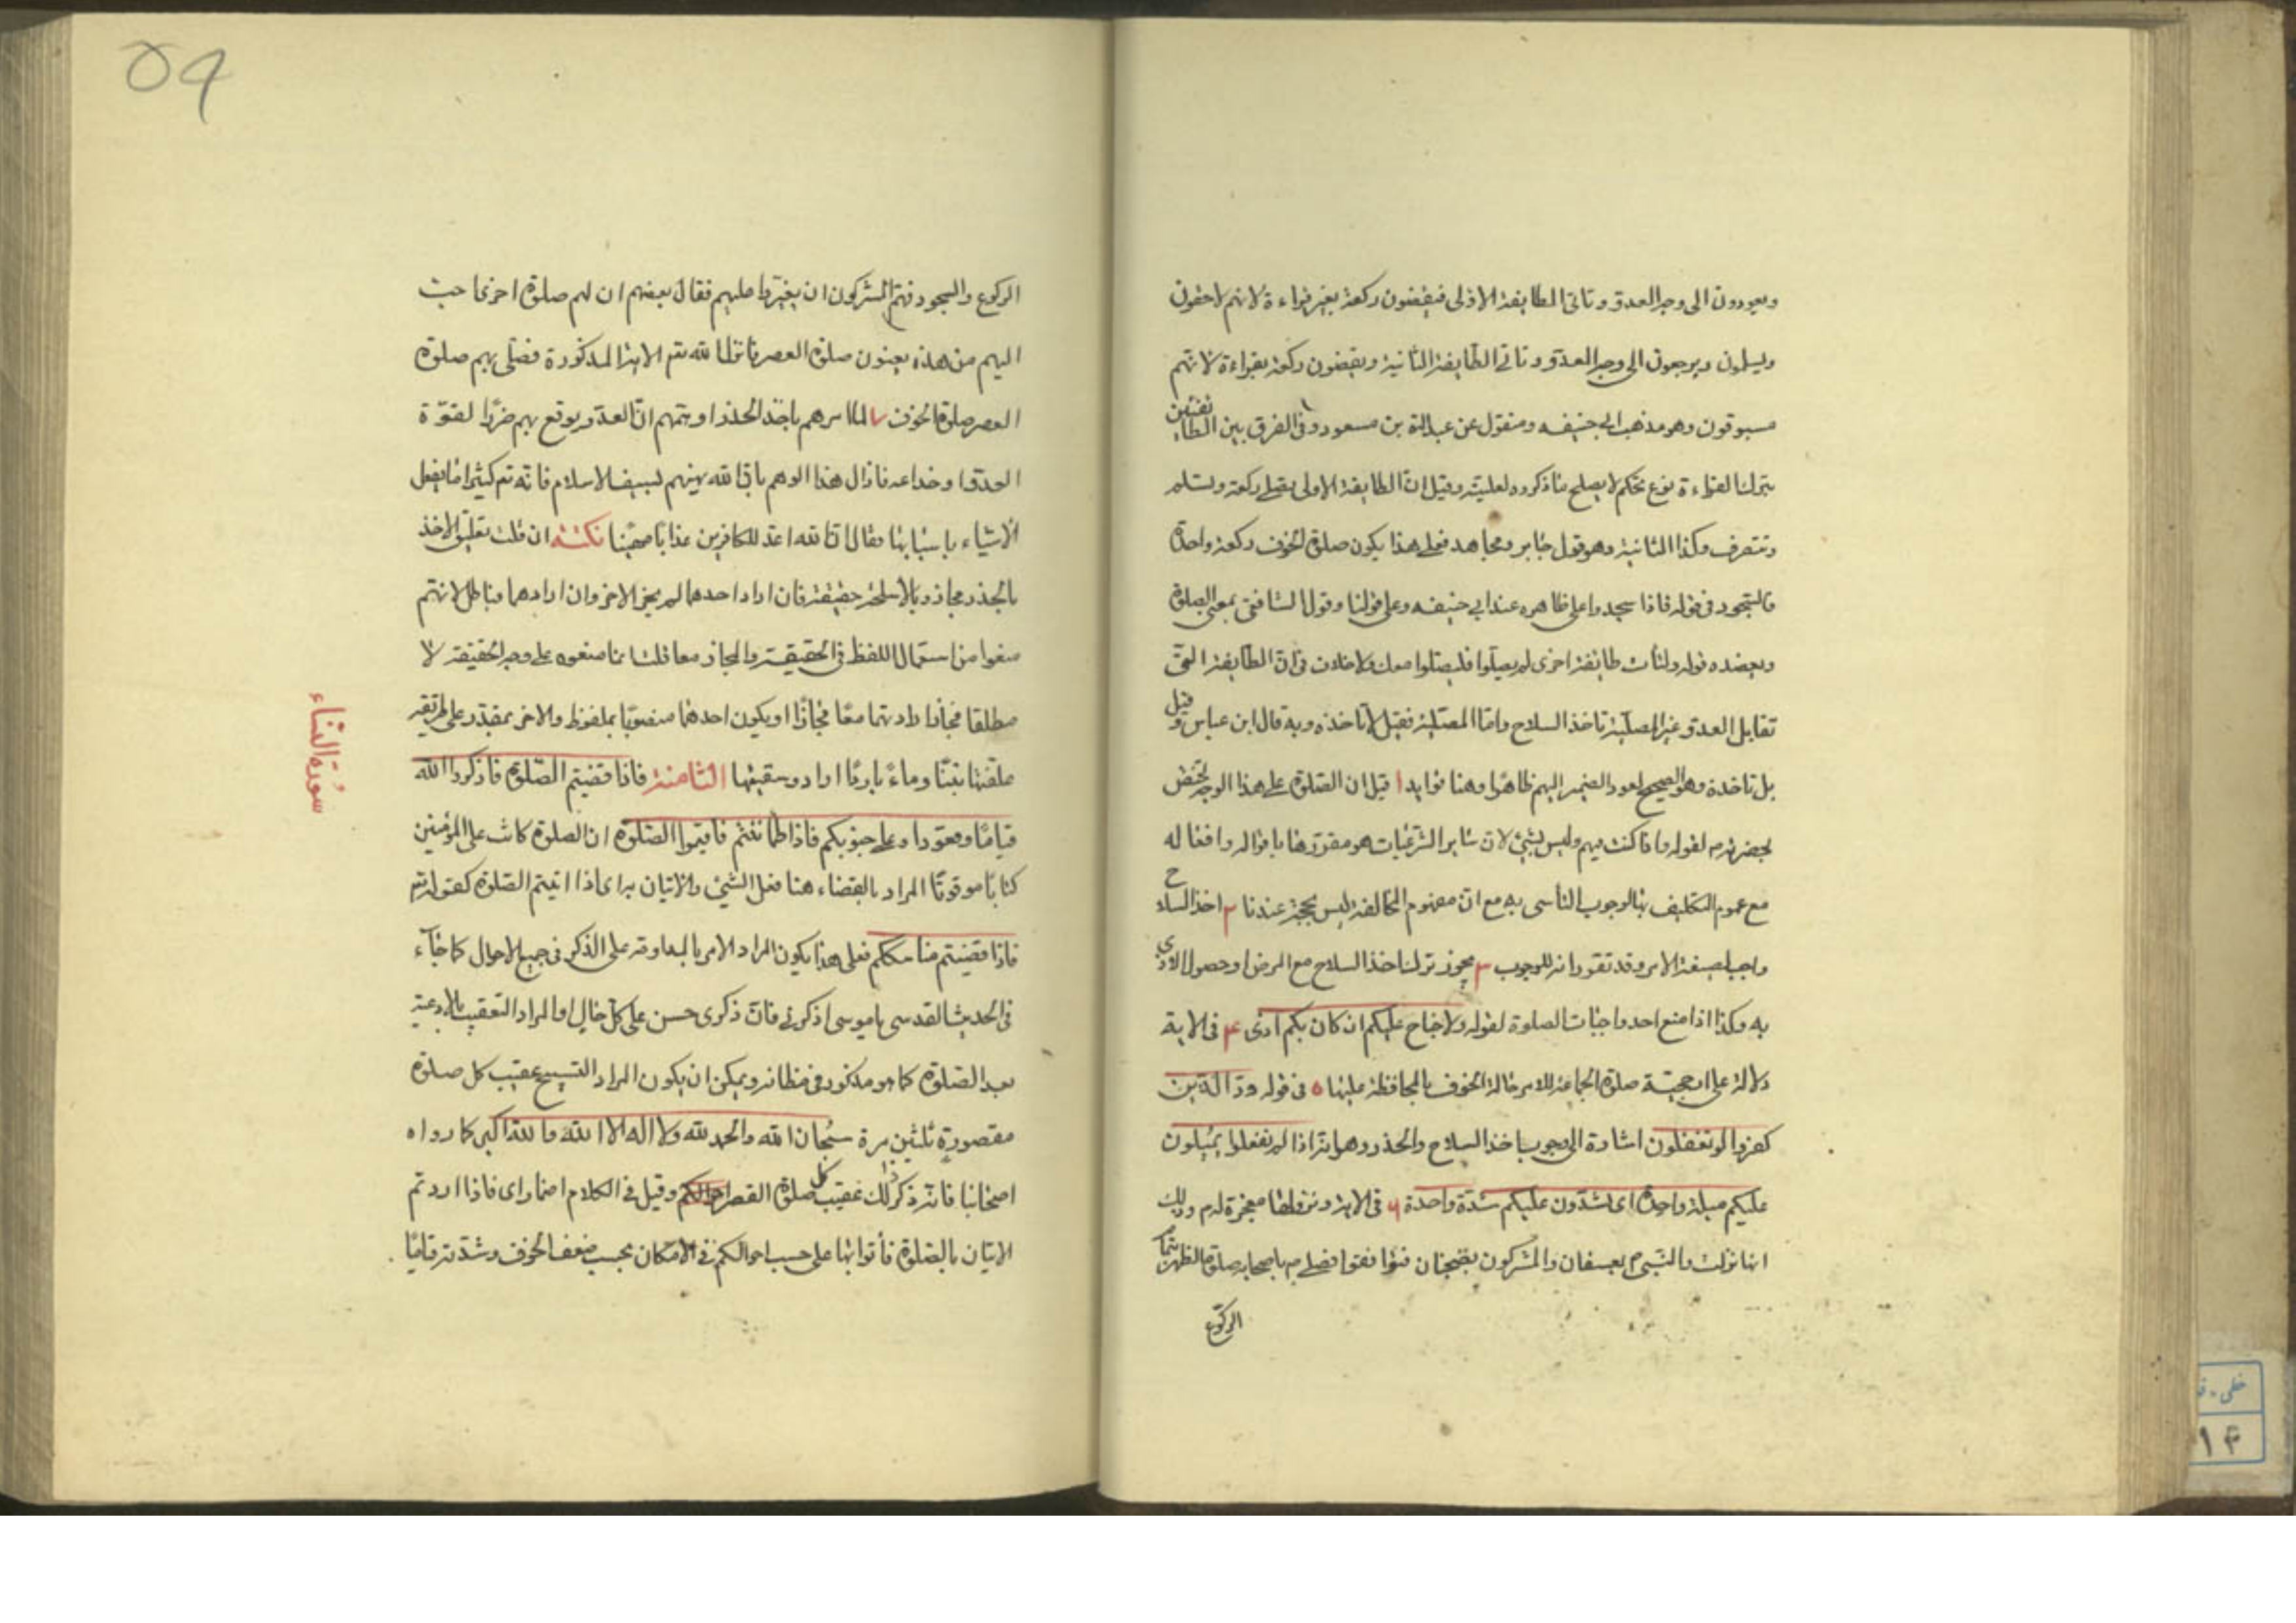 ويعودون الى وجه العدو وتاتى الطايفة الاولى فيقضون ركعة بغير قراءة لانهم لاحقون
ويسلمون ويرجعون الى وجه العدو وتاتى الطايفة الثانية ويقضون ركعة بقراءة لانهم
مسبوقون وهو مذهب ابى حنيفه ومنقول عن عبد الله بن مسعود وفى الفرق بين الطايفتين
بترك القراءة نوع تحكم لا يصلح ما ذكروه لعليته وقيل ان الطايفة الاولى يصلى ركعة وتسلم
وتنصرف وكذا الثانية وهو قول جابر ومجاهد فعلى هذا يكون صلوة الخوف ركعة واحدة
فالسجود فى قوله فاذا سجدوا على ظاهره عند ابى حنيفه وعلى قولنا وقول الشافعى بمعنى الصلوة
ويعضده قوله ولتأت طائفة اخرى لم يصلوا فليصلوا معك ولا خلاف فى ان الطايفة التى
تقابل العدو غير المصلية تاخذ السلاح واما المصلية فقيل لا تاخذه وبه قال ابن عباس وقيل
بل تاخذه وهو الصحيح لعود الضمير اليهم ظاهرا وهنا فوايد ا قيل ان الصلوة على هذا الوجه تختص
بحضرته م لقوله واذا كنت فيهم وليس بشئ لان ساير الشرعيات هو مقررها باقواله وافعاله
مع عموم التكليف بها لوجوب التأسى به مع ان مفهوم المخالفة ليس بحجة عندنا ٢ اخذ السلاح
واجب لصيغة الامر وقد تقرر انه للوجوب ٣ يجوز ترك اخذ السلاح مع المرض او حصول الاذى
به وكذا اذا منع احد واجبات الصلوة لقوله ولا جناح عليكم ان كان بكم اذى ۴ فى الاية
دلالة على ارجحية صلوة الجماعة للامر حالة الخوف بالمحافظة عليها ۵ فى قوله ود الذين
كفروا لو تغفلون اشارة الى وجوب اخذ السلاح والحذر وهو انه اذا لم تفعلوا يميلون
عليكم ميلة واحدة اى يشدون عليكم شدة واحدة ۶ فى الاية ونزولها معجزة له م وذلك
انها نزلت والنبى م بعسفان والمشركون بضجنان فتوافقوا فصلى م باصحابه صلوة الظهر بتمام
الركوع
الركوع والسجود فهم المشركون ان يغيروا عليهم فقال بعضهم ان لهم صلوة اخرى احب
اليهم من هذه يعنون صلوة العصر فانزل الله تع الاية المذكورة فصلى بهم صلوة
العصر صلوة الخوف ٧ لما امرهم باخذ الحذر اوهمهم ان العدو يوقع بهم ضررا لقوة
العدو او خداعه فازال هذا الوهم بان الله يهينهم لسيف الاسلام فانه تع كثيرا ما يفعل
الاشياء باسبابها فقال ان الله اعد للكافرين عذابا مهينا نكتة ان قلت تعليق الاخذ
بالحذر مجاز وبالاسلحة حقيقة فان اراد احدهما لم يجز الاخر وان ارادهما فباطل لانهم
منعوا من استعمال اللفظ فى الحقيقة والمجاز معا قلت انما منعوه على وجه الحقيقة لا
مطلقا فجاز ارادتهما معا مجازا او يكون احدهما منصوبا بملفوظ والاخر بمقدر على طريقة
علفتها تبنا وماء باردا اراد وسقيتها الثامنة فاذا قضيتم الصلوة فاذكروا الله
قياما وقعودا وعلى جنوبكم فاذا اطماننتم فاقيموا الصلوة ان الصلوة كانت على المؤمنين
كتابا موقوتا المراد بالقضاء هنا فعل الشئ والاتيان به اى اذا اتيتم الصلوة كقوله تع
فاذا قضيتم مناسككم فعلى هذا يكون المراد الامر بالمداومة على الذكر فى جميع الاحوال كما جاء
فى الحديث القدسى يا موسى اذكرنى فان ذكرى حسن على كل حال او المراد التعقيب بالادعية
بعد الصلوة كما هو مذكور فى مظانه ويمكن ان يكون المراد التسبيح عقيب كل صلوة
مقصورة ثلثين مرة سبحان الله والحمد لله ولا اله الا الله والله اكبر كما رواه
اصحابنا فانه ذكر ذلك عقيب كل صلوة القصر وقيل فى الكلام اضمار اى فاذا اردتم
الاتيان بالصلوة فأتوا بها على حسب احوالكم فى الامكان بحسب ضعف الخوف وشدته قياما
سورة النساء
۵۹